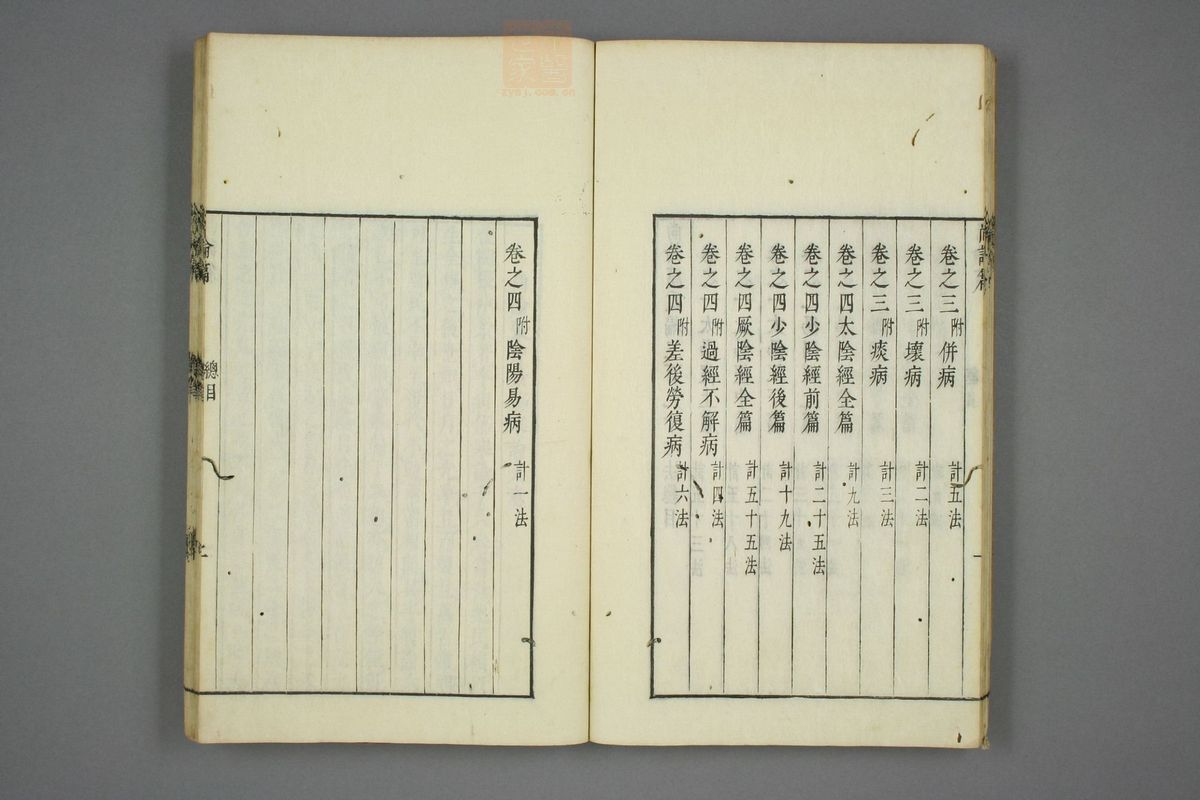 卷之三附併病 計五法
卷之三附壞病 計二法
卷之三附痰病 計三法
卷之四太陰經全篇 計九法
卷之四少陰經前篇 計二十五法
卷之四少陰經後篇 計十九法
卷之四厥陰經全篇 計五十五法
卷之四附過經不解病 計四法
卷之四附差後勞復病 計六法
卷之四附陰陽易病 計一法
論篇
總目
zysj.com.cn